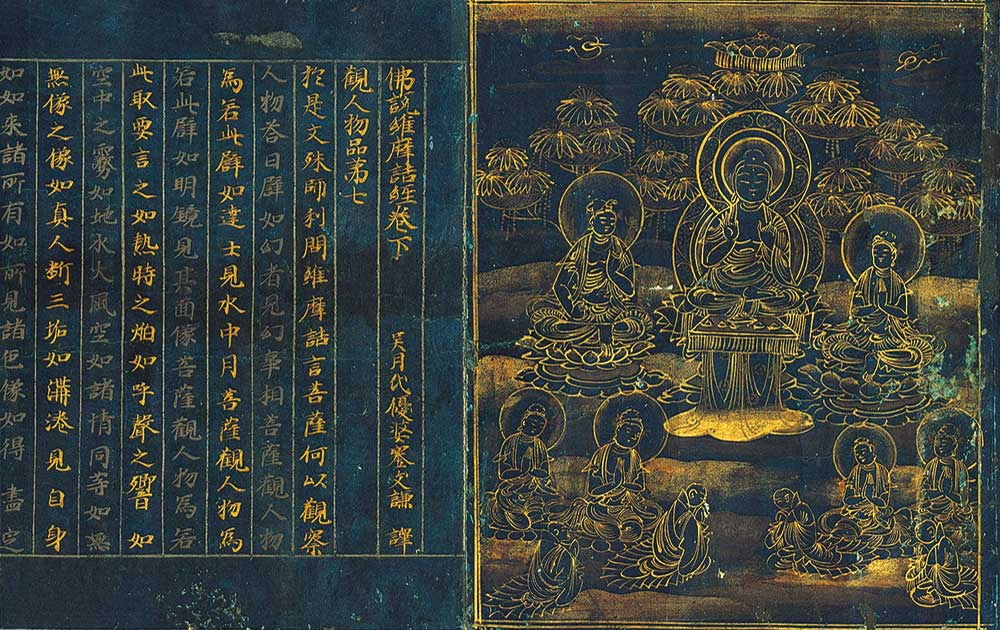 佛說維摩詰經卷下 吳月氏優婆塞支謙 譯
觀人物品第七
於是文殊師利問維摩詰言菩薩何以觀察
人物荅曰譬如幻者見幻事相菩薩觀人物
為若此譬如達士見水中月菩薩觀人物為
若此譬如明鏡見其面像菩薩觀人物為若
此取要言之如熱時之焰如呼聲之響如
空中之霧如地水火風空如諸情同等如無
無像之像如真人斷三垢如溝港見自身
如如来諸所有如所見諸色像如得 盡定